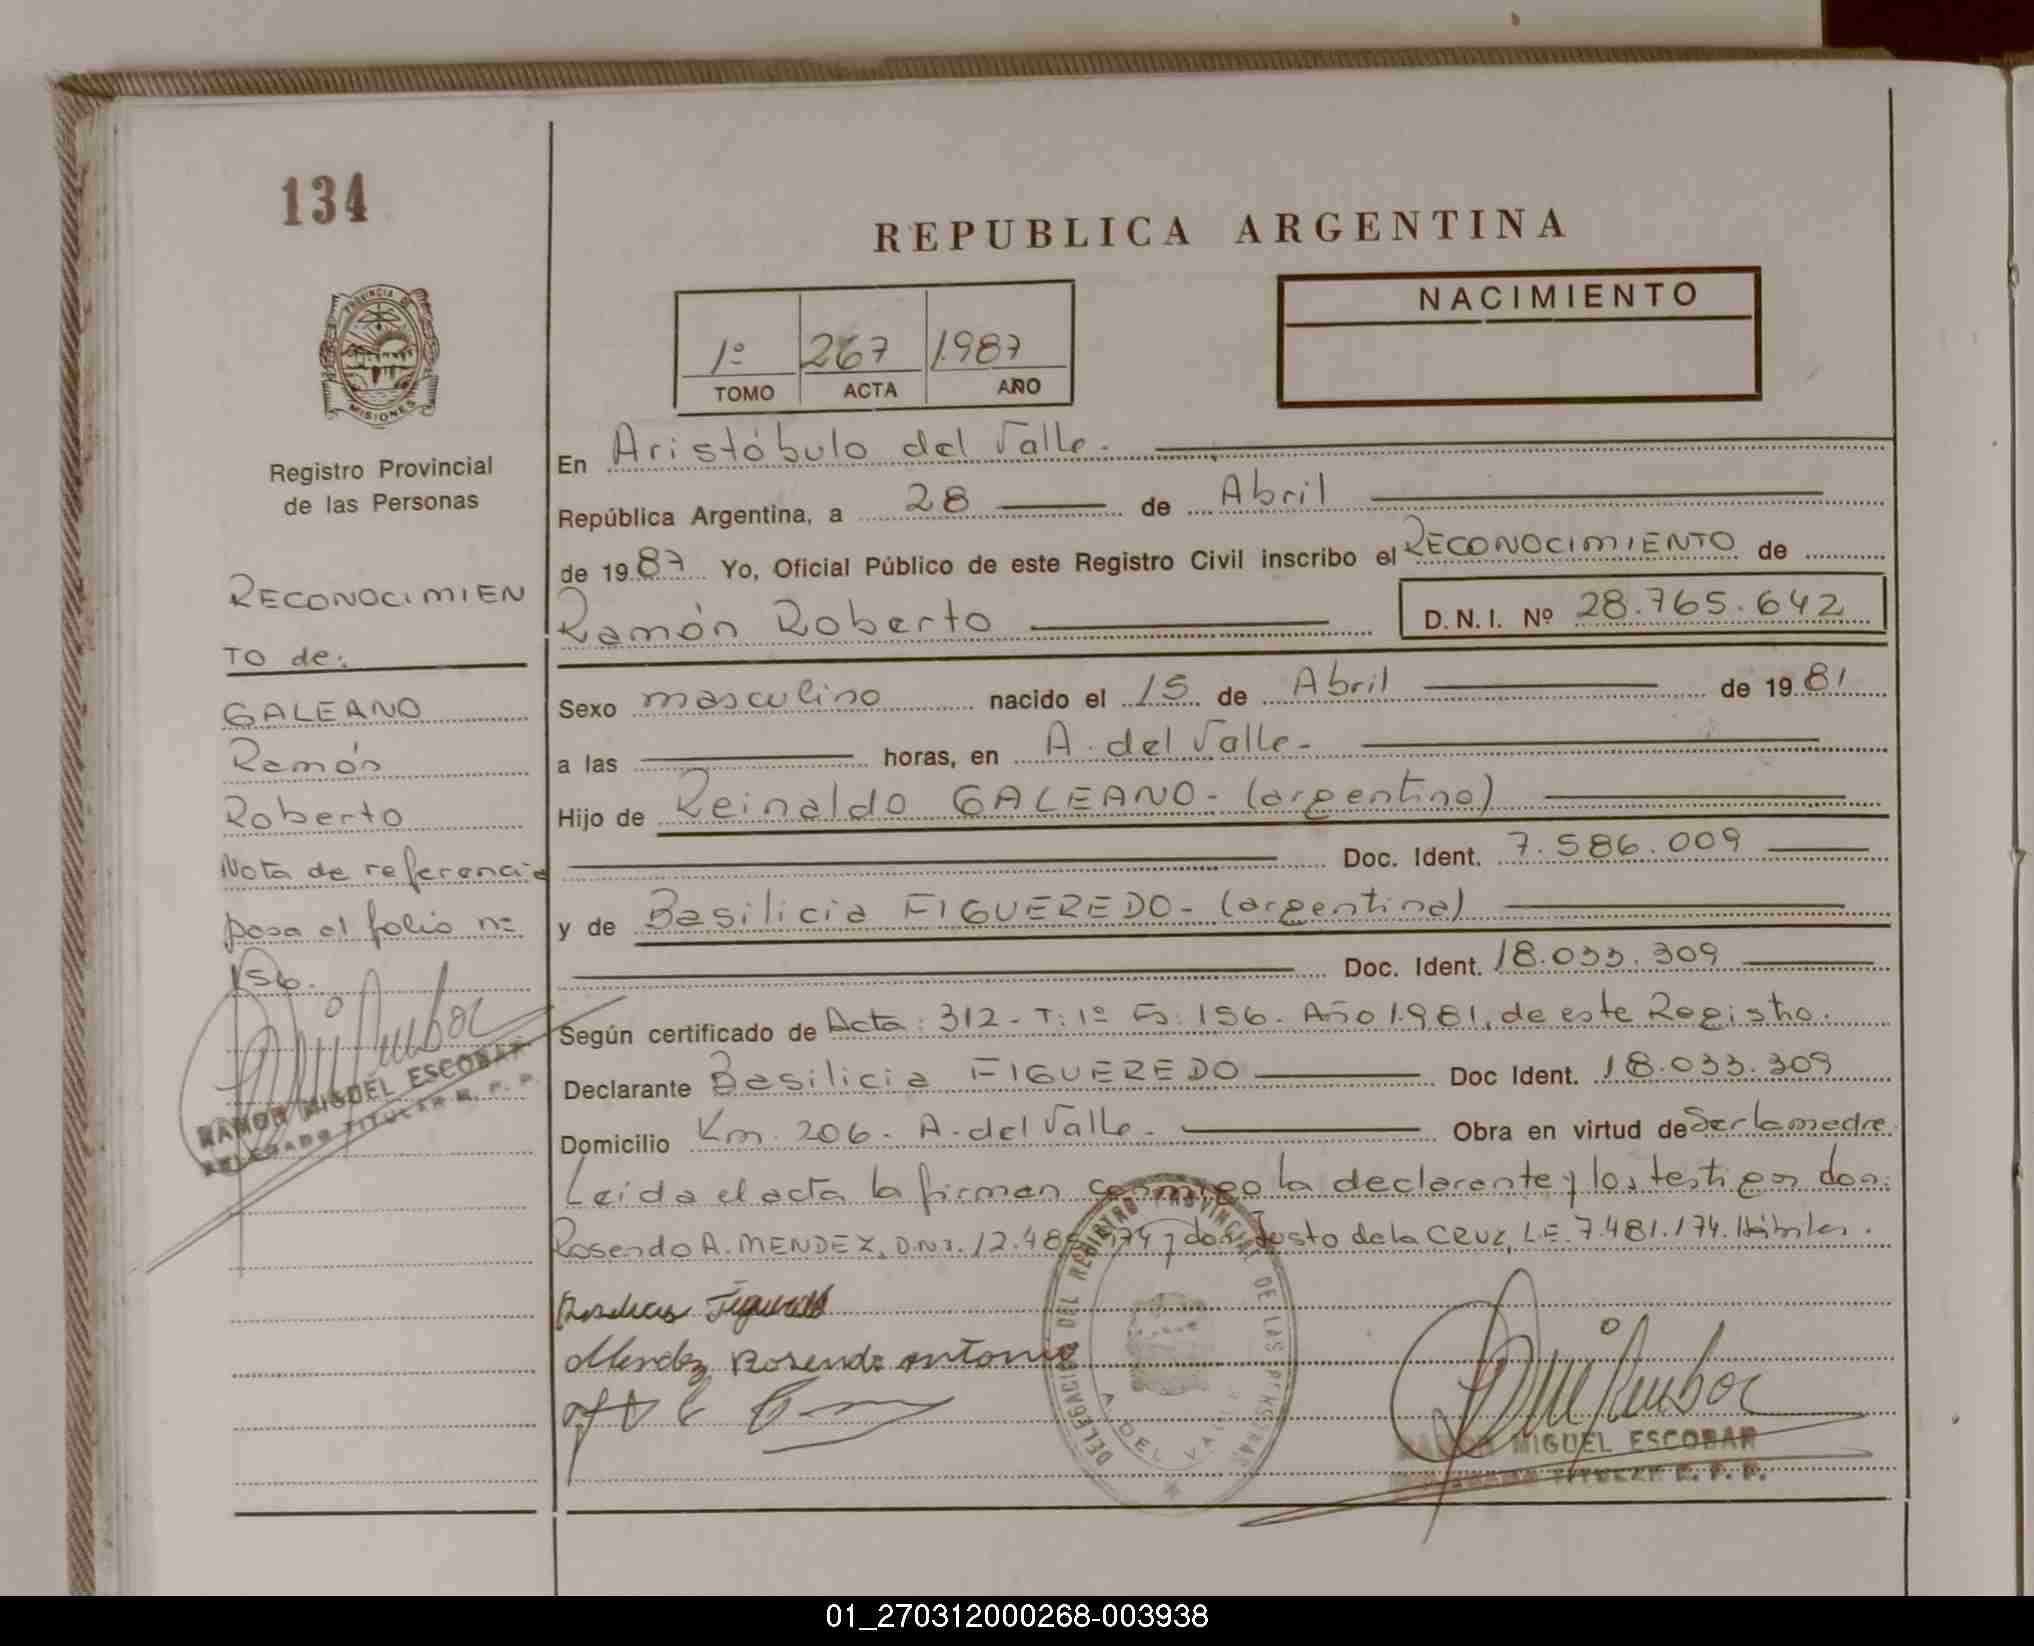 134
REPUBLICA ARGENTINA
PROVINCIA DE
MISIONES
Registro Provincial
de las Personas
1º 267 1987
TOMO ACTA AÑO
NACIMIENTO
RECONOCIMIEN
TO de:
GALEANO
Ramón
Roberto
Nota de referencia
pasa al folio nº
156.
RAMON MIGUEL ESCOBAR
DELEGADO TITULAR R. P. P.
En Aristóbulo del Valle.
República Argentina, a 28 de Abril
de 1987 Yo, Oficial Público de este Registro Civil inscribo el RECONOCIMIENTO de
Ramón Roberto D.N.I. Nº 28.765.642
Sexo masculino nacido el 15 de Abril de 1981
a las horas, en A. del Valle-
Hijo de Reinaldo GALEANO- (argentino)
Doc. Ident. 7.586.009
y de Basilicia FIGUEREDO- (argentina)
Doc. Ident. 18.033.309
Según certificado de Acta: 312- T: 1º Fs: 156. Año 1981, de este Registro.
Declarante Basilicia FIGUEREDO Doc Ident. 18.033.309
Domicilio Km. 206- A. del Valle- Obra en virtud de ser la madre.
Leida el acta la firman conmigo la declarante y los testigos don:
Rosendo A. MENDEZ, D.N.I. 12.48 y don Justo de la CRUZ, L.E. 7.481.174. Hábiles.
Figueredo
Mendez Rosendo antonio
DELEGACION DEL REGISTRO PROVINCIAL DE LAS PERSONAS
A. DEL VALLE
RAMON MIGUEL ESCOBAR
DELEGADO TITULAR R. P. P.
01_270312000268-003938